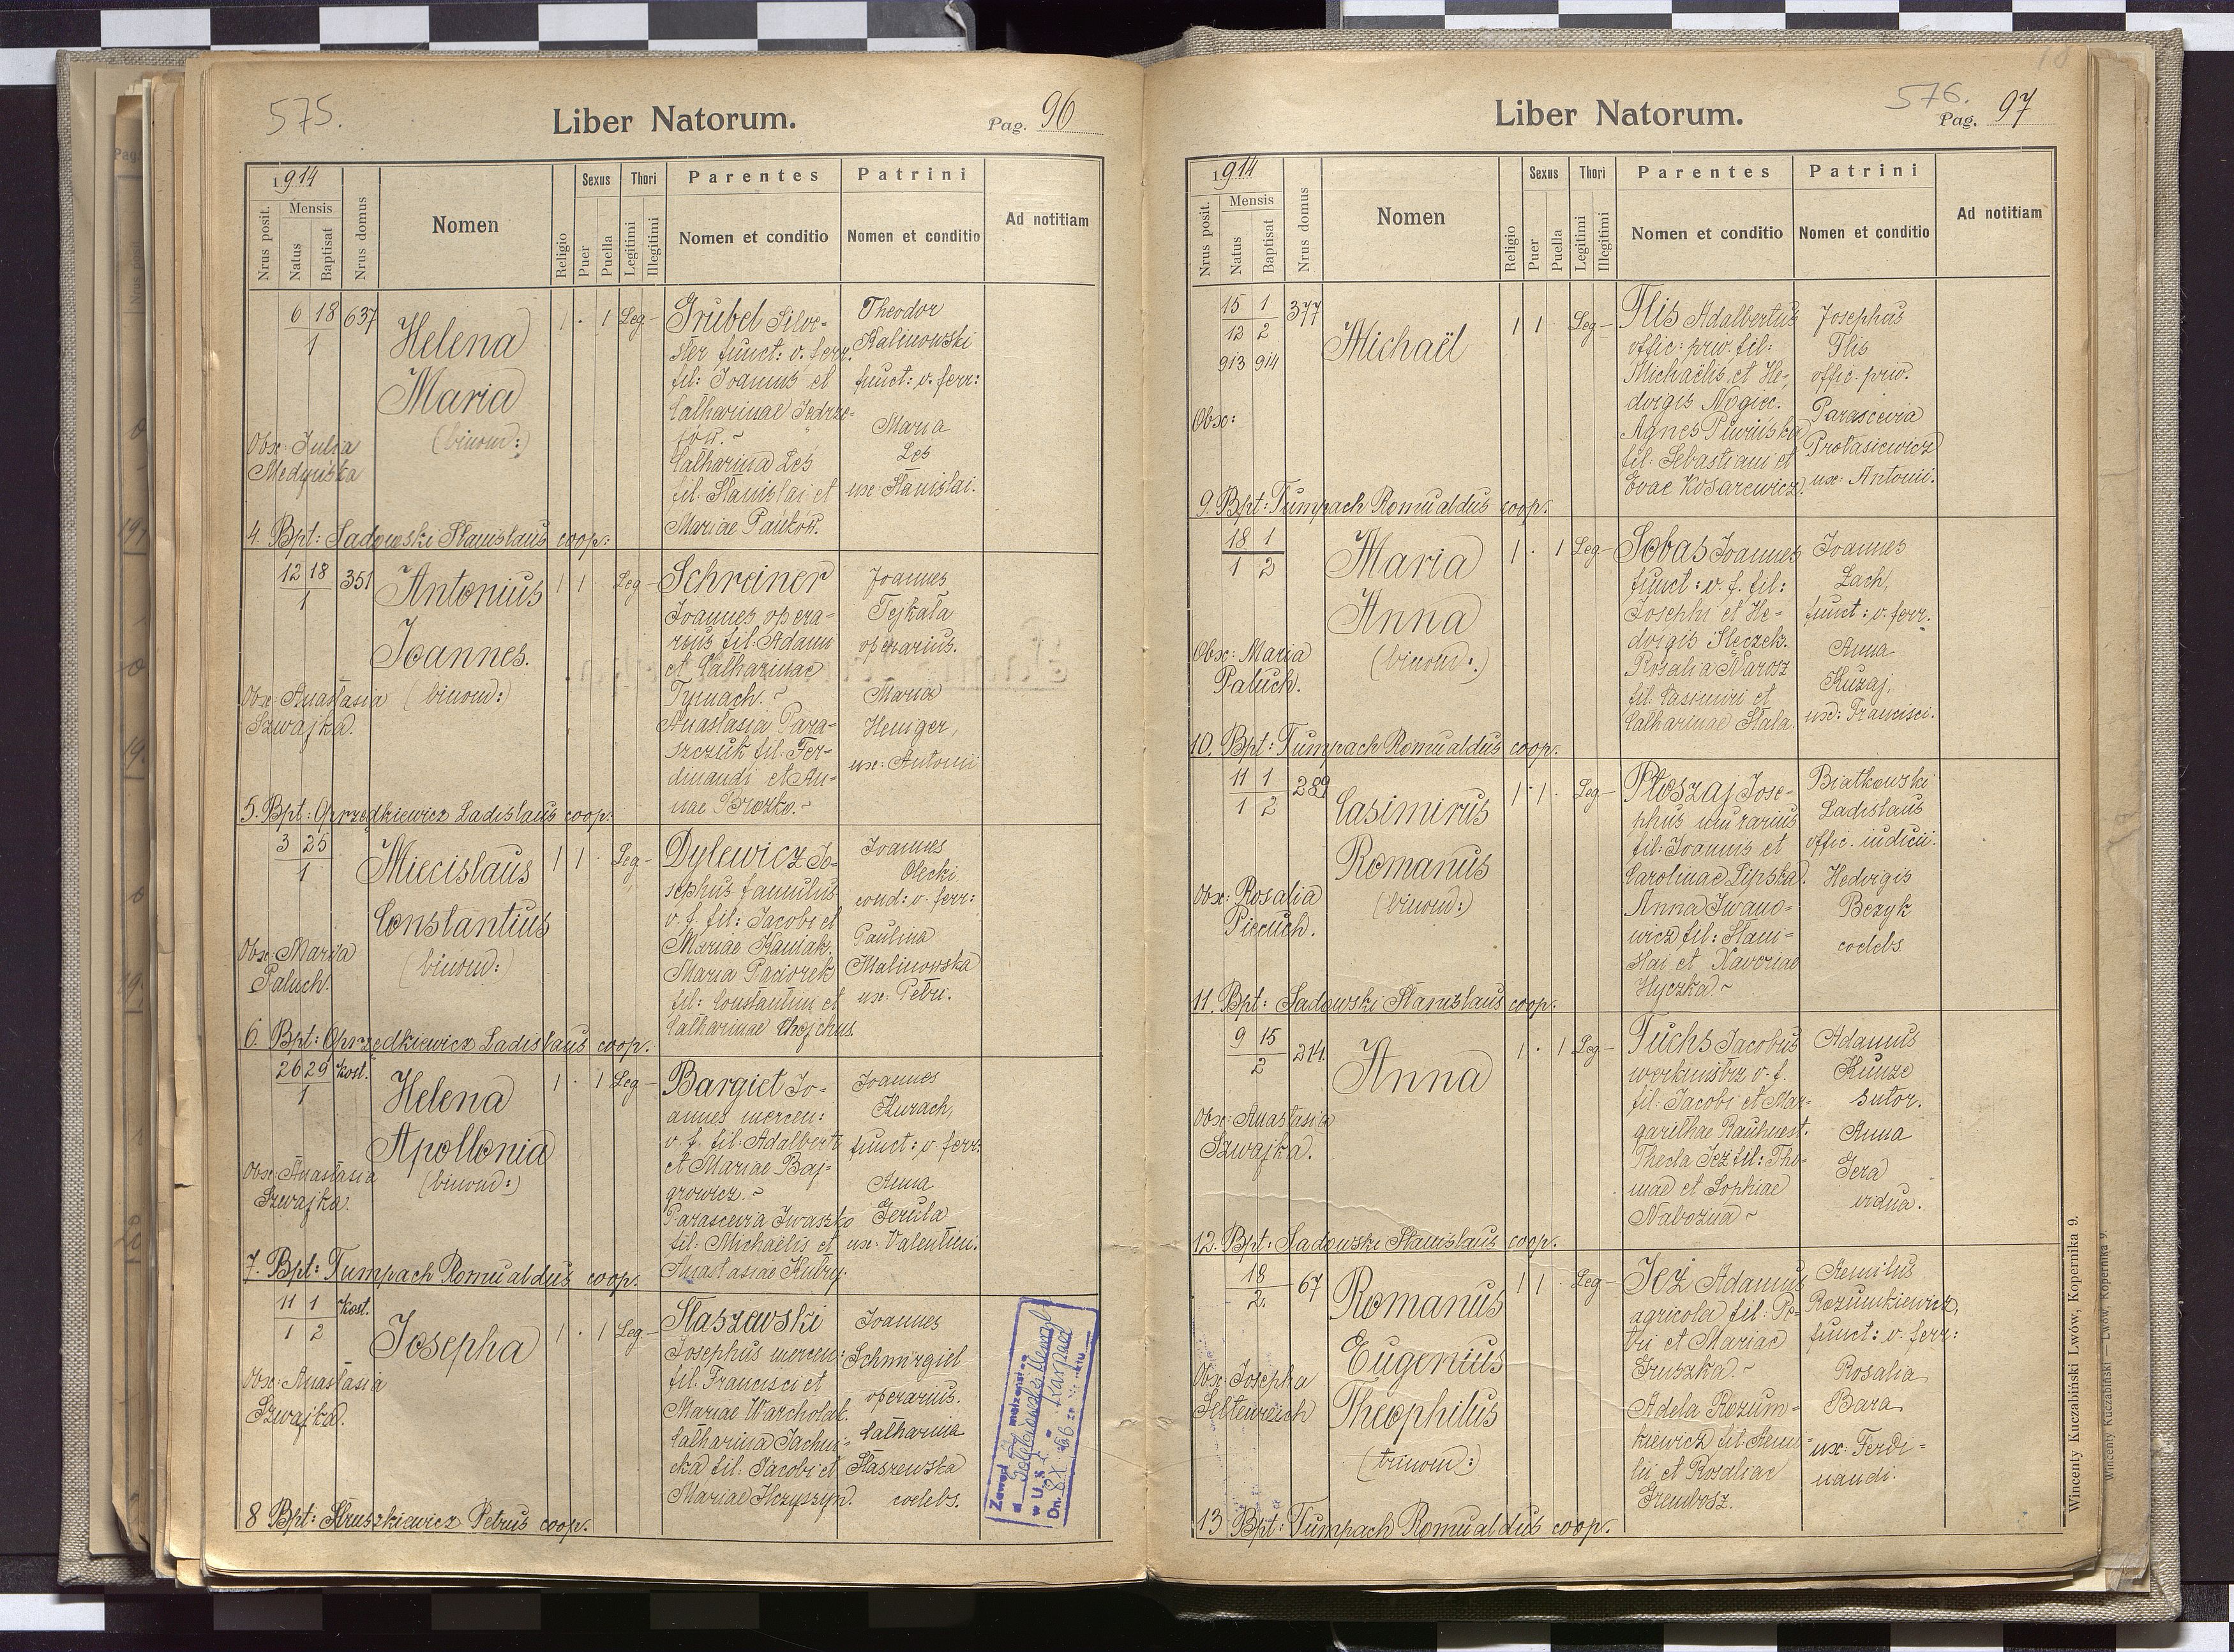 575.
Liber Natorum.
Pag. 96
1914
Nrus posit.
Mensis
Natus
Baptisat
Nrus domus
Nomen
Religio
Sexus
Puer
Puella
Thori
Legitimi
Illegitimi
Parentes
Nomen et conditio
Patrini
Nomen et conditio
Ad notitiam
6 18 637
1
Helena
Maria
(binom:)
1 · 1 Leg -
Obx: Julia
Medyńska
Grubel Silve-
ster funct: v. ferr.
fil: Joannis et
Catharinae Jedrze-
jów. ~
Catharina Leś
fil. Stanislai et
Mariae Pańków.
Theodor
Kalinowski
funct: v. ferr:
Maria
Leś
ux: Stanislai.
4. Bpt: Sadowski Stanislaus coop:
12 18 351
1
Antonius
Joannes.
(binom:)
1 1 · Leg -
Obx: Anastasia
Szwajka.
Schreiner
Joannes opera-
rius fil: Adami
et Catharinae
Tymach. ~
Anastasia Para-
szczuk fil: Fer-
dinandi et An-
nae Brozko. ~
Joannes
Tejkała
operarius.
Maria
Heniger,
ux: Antonii
5. Bpt: Oprzędkiewicz Ladislaus coop:
3 25
1
Miecislaus
Constantius
(binom:)
1 1 · Leg -
Obx: Maria
Paluch.
Dylewicz Jo-
sephus famulus
v. f. fil: Jacobi et
Mariae Kaniak.
Maria Paciorek
fil: Constantini et
Catharinae Chojchus
Joannes
Olecki
cond: v. ferr:
Paulina
Malinowska
ux: Petri.
6. Bpt: Oprzędkiewicz Ladislaus coop.
26 29 kost.
1
Helena
Apollonia
(binom:)
1 · 1 Leg -
Obx: Anastasia
Szwajka.
Bargiel Jo-
annes mercen:
v. f. fil: Adalberti
et Mariae Baj-
growicz. ~
Parascevia Iwaszko
fil: Michaëlis et
Anastasiae Kubry.
Joannes
Kurach,
funct: v. ferr:
Anna
Jerula
ux: Valentini.
7. Bpt: Tumpach Romualdus coop.
11 1 kost.
1 2
Josepha
1 · 1 Leg -
Obx: Anastasia
Szwajka.
Staszewski
Josephus mercen:
fil: Francisci et
Mariae Warcholak.
Catharina Jachni-
cka fil: Jacobi et
Mariae Hczyszyn.
Joannes
Schmirgiel
operarius.
Catharina
Staszewska
coelebs.
8 Bpt: Kruszkiewicz Petrus coop.
576.
Liber Natorum.
Pag. 97
1914
Nrus posit.
Mensis
Natus
Baptisat
Nrus domus
Nomen
Religio
Sexus
Puer
Puella
Thori
Legitimi
Illegitimi
Parentes
Nomen et conditio
Patrini
Nomen et conditio
Ad notitiam
15 1 377
12 2
913 914
Michaël
1 1 · Leg -
Obx:
Flis Adalbertus
offic: priv. fil:
Michaëlis et He-
dvigis Nogiec.
Agnes Piwińska
fil. Sebastiani et
Evae Kosarewicz.
Josephus
Flis
offic. priv.
Parascevia
Protasiewicz
ux: Antonii.
9. Bpt: Tumpach Romualdus coop.
18 1
1 2
Maria
Anna
(binom:)
1 · 1 Leg -
Obx: Maria
Paluch.
Sobas Joannes
funct: v. f. fil:
Josephi et He-
dvigis Sleczek.
Rosalia Marosz
fil: Casimiri et
Catharinae Stala.
Joannes
Zach,
funct: v. ferr.
Anna
Kuzaj,
ux: Francisci.
10. Bpt: Tumpach Romualdus coop.
11 1 289
1 2
Casimirus
Romanus
(binom:)
1 1 · Leg -
Obx: Rosalia
Piecuch.
Płoszaj Jose-
phus murarius
fil: Joannis et
Carolinae Lipska.
Anna Iwano-
wicz fil: Stani-
slai et Xaveriae
Hyczka. ~
Białkowski
Ladislaus
offic. iudicii.
Hedvigis
Bezyk
coelebs.
11. Bpt: Sadowski Stanislaus coop.
9 15 214
2
Anna
1 · 1 Leg -
Obx: Anastasia
Szwajka.
Fuchs Jacobus
werkmistrz v. f.
fil: Jacobi et Mar-
garithae Rauhnest.
Thecla Jeż fil: Tho-
mae et Sophiae
Nabożna ~
Adamus
Kunze
sutor.
Anna
Jera
vidua.
12. Bpt: Sadowski Stanislaus coop.
18 67
2.
Romanus
Eugenius
Theophilus
(trinom:)
1 1 · Leg -
Obx: Josepha
Seltenreich
Jeż Adamus
agricola fil: Pe-
tri et Mariae
Gruszka. ~
Adela Rozum-
kiewicz fil: Aemi-
lii et Rosaliae
Grembosz.
Aemilius
Rozumkiewicz,
funct: v. ferr:
Rosalia
Bara
ux: Ferdi-
nandi.
13 Bpt: Tumpach Romualdus coop.
Wincenty Kuczabiński Lwów, Kopernika 9.
Wincenty Kuczabiński — Lwów, Kopernika 9.